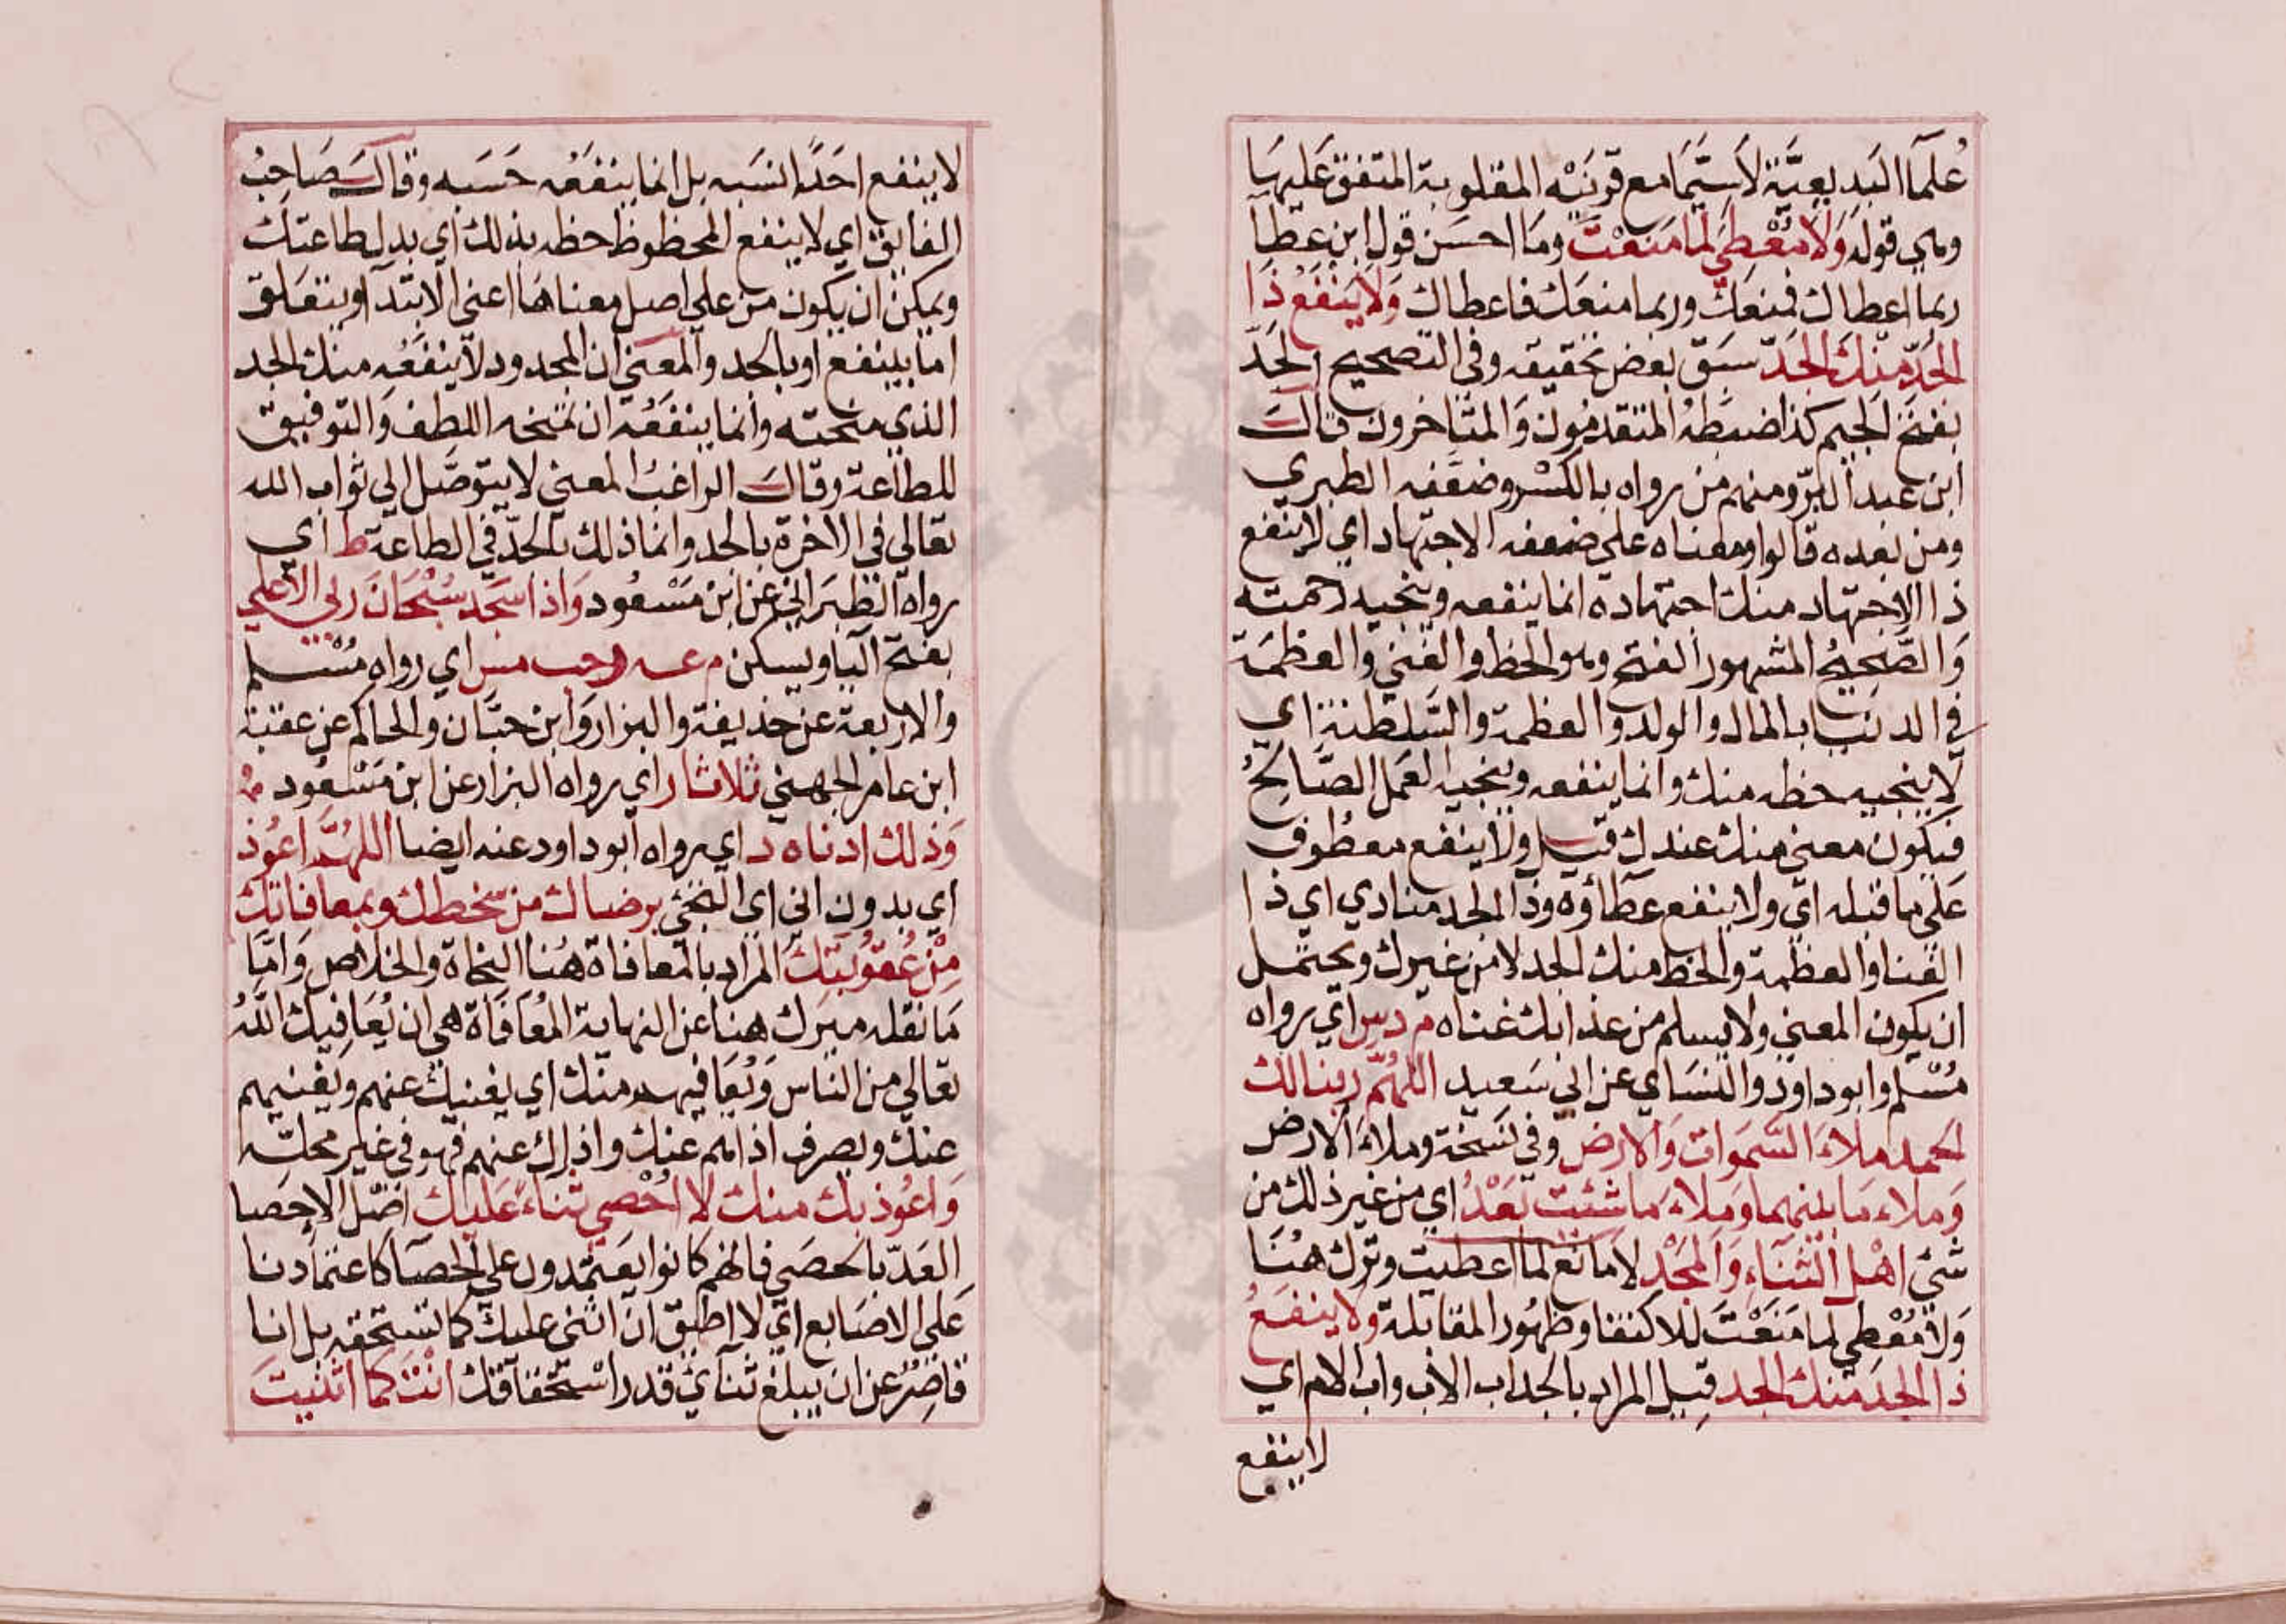 علمآ البديعيَّة لاسَيَّمَا مع قرينَتِه المقلوبة المتفق عَليهَا
وهي قوله وَلَا مُعْطِيَ لمَا مَنعْتَ ومَا احسَن قول ابن عطآ
ربما اعطاك فمنعَك وربما منعَك فاعطاك وَلَا يَنْفَعُ ذَا
الجَدّ مِنْكَ الجَدّ سبَق بعض تحقيقه وفي التصحيح الجَدّ
بفتح الجيم كذا ضبَطهُ المتقدمون وَالمتاخرون قالَ
ابن عبد البرّ ومنهم من رواه بالكسْر وضعَّفه الطبري
ومن بعده قالوا ومعناه على ضعفه الاجتهاد اي لا ينفع
ذا الاجتهاد منك اجتهاده انما ينفعه وينجيه رحمته
وَالصَّحِيحُ المشهور الفتح وهو الحظ والغنى والعظمَة
في الدنيا بالمال والولد والعظمة والسَّلطنة اي
لا ينجيه حظه منك وانما ينفعه وينجيه العَمل الصَّالِحُ
فيكون معنى منك عندك قيل ولا ينفع معطُوف
عَلى ما قبله اي ولا ينفع عطاؤه وذا الجد منادي اي ذا
الغنا والعظمة والحظ منك الجد لا من غيرك ويحتمل
ان يكون المعنى ولا يسلم من عذابك غناه م د س اي رواه
مُسْلم وابو داود والنسَاي عن ابي سَعيد اللهُمَّ ربنا لك
الحمد ملاءَ السَّموات وَالارض وفي نسَخة وملاءَ الارض
وَملاءَ مَا بينهما وَملاءَ مَا شئت بَعْدُ اي من غير ذلك من
شئ اهْل الثنَاءِ وَالمجْد لا مَانع لما اعطيت وترك هُنَا
وَلا مُعْطِي لما مَنَعْتَ للاكتفا وظهُور المقابلة ولا ينفعُ
ذا الجد منك الجد قيل المراد بالجد اب الاب واب الام اي
لا ينفع
لا ينفع احَدًا نسَبه بل انما ينفَعُه حَسَبه وقالَ صَاحِبُ
الفايق اي لا ينفع المحظوظ حظه بذلك اي بدل طاعتك
ويمكن ان يكون من على اصل معناها اعني الابتدآ ويتعَلق
اما بينفع او بالجد والمعنى ان المجدود لا ينفَعُه منك الجد
الذي منحته وانما ينفَعُه ان تمنحه اللطف وَالتوفيق
للطاعة وقالَ الراغبُ المعنى لا يتوصَّل الي ثواب الله
تعالى في الاخرة بالجد وانما ذلك بالجدّ في الطاعة ط اي
رواه الطبَراني عن ابن مَسْعُود وَاذا سَجد سُبْحَانَ ربي الاعلي
بفتح اليا ويسكن م عه ر حب مس اي رواه مُسْلم
والاربعة عن حذيفة والبزار وَابن حبَّان والحاكم عن عقبة
ابن عامر الجهني ثلاثا ر اي رواه البزار عن ابن مَسْعُود
وَذلك ادناه د اي رواه ابو داود عنه ايضا اللهُمَّ اعُوذ
اي بدون اني اي التجئ برضاك من سَخطك وبمعافاتك
مِنْ عُقوبَتِكَ المراد بالمعافاة هُنا النجاة والخلاص وَامَّا
مَا نقله ميرك هنا عن النهاية المُعَافَاة هي ان يُعَافِيك اللّهُ
تعالى من الناس وَيُعَافيهم منك اي يغنيك عنهم ويغنيهم
عنك ويصرف اذاهم عنك واذاك عنهم فهو في غير محلّه
وَاعُوذ بك منك لا احْصِي ثناءً عَليك اصْل الاحصا
العَدّ بالحصَى فانهم كانوا يعَتمدون على الحصَا كاعتمادنا
عَلى الاصَابع اي لا اطيق ان اثني عليك كما تستحقه بل انا
قاصِرٌ عن ان يبلغ ثنآئ قدر استحقاقك انْت كما اثنيتَ